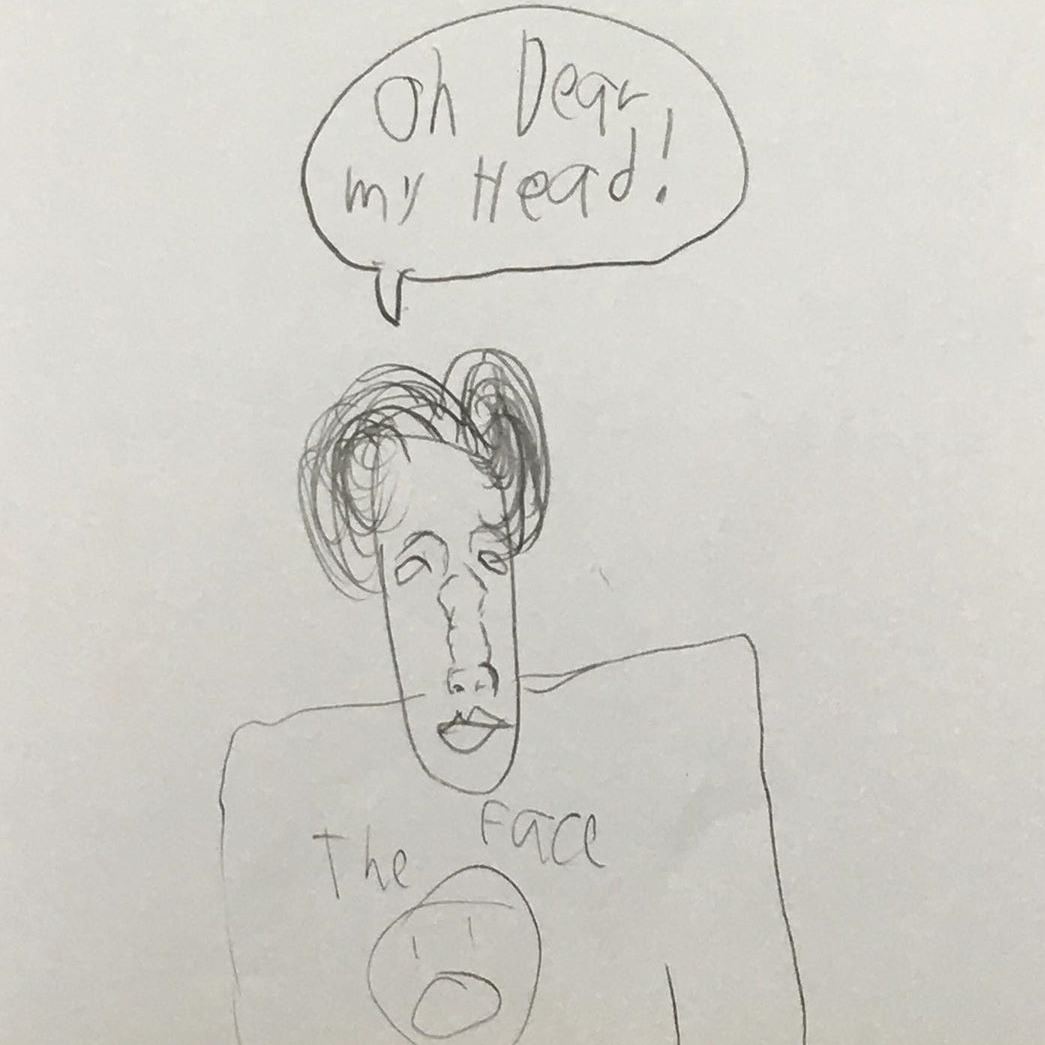 Oh Dear
my Head!
The Face